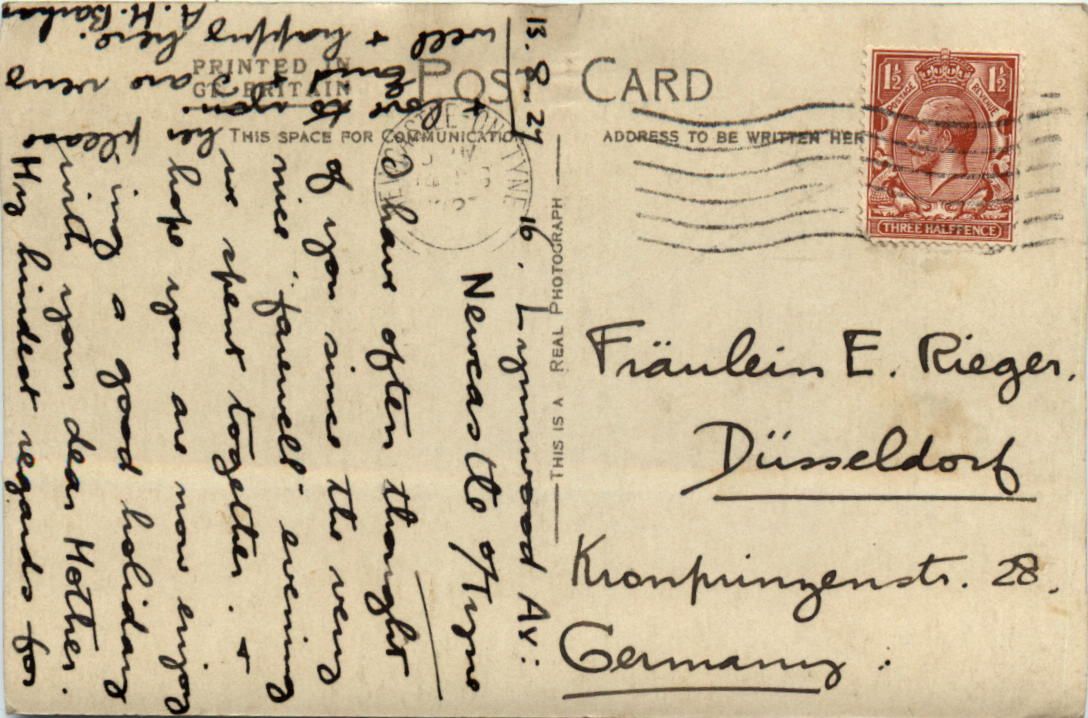 PRINTED IN
GT. BRITAIN
POST CARD
THIS SPACE FOR COMMUNICATION
ADDRESS TO BE WRITTEN HERE
THIS IS A REAL PHOTOGRAPH
1½ 1½
POSTAGE REVENUE
THREE HALFPENCE
NEWCASTLE ON TYNE
13.8.27 16. Lynnwood Av:
Newcastle o/Tyne
I have often thought
of you since the very
nice "farewell" evening
we spent together. +
hope you are now enjoy
ing a good holiday
with your dear Mother.
My kindest regards for
her please
+ love to you.
+ I are very
well + happy here.
A. H.
Fräulein E. Rieger.
Düsseldorf
Kronprinzenstr. 28.
Germany.